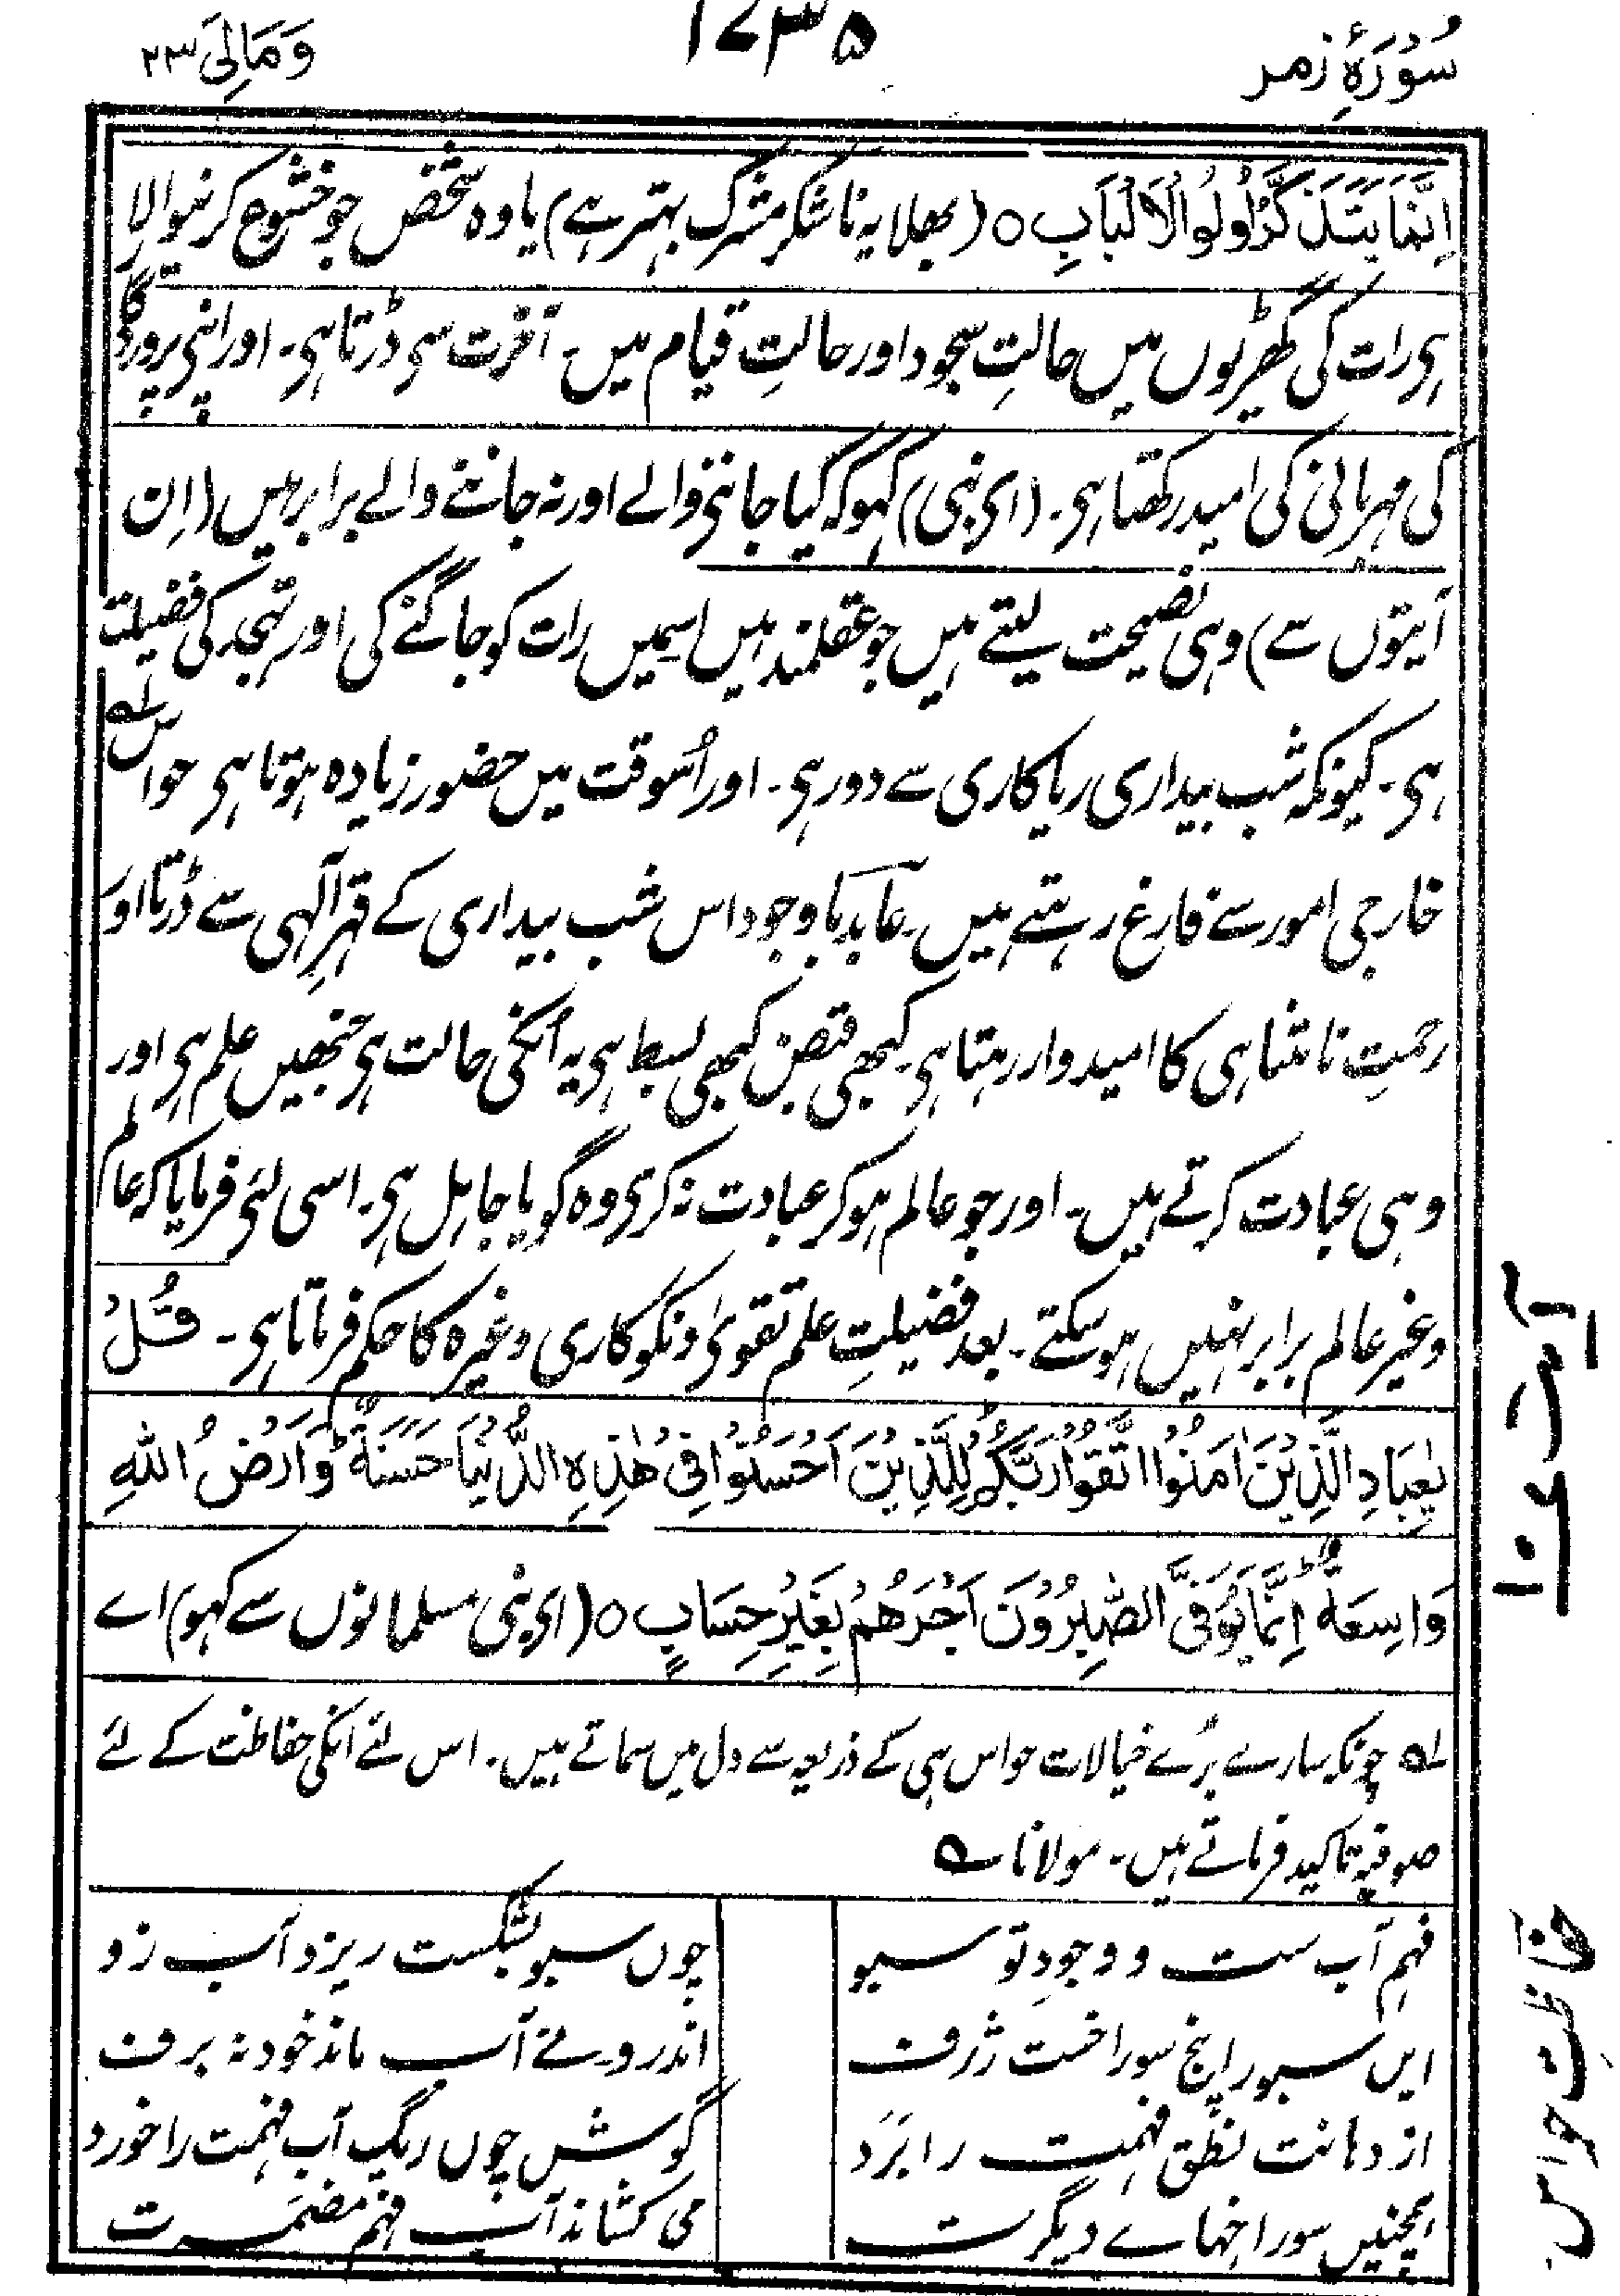 سُوْرَۂِ زمر
۱۷۳۵
وَمَالِیَ ۲۳
اِنَّمَا یَتَذَکَّرُ اُولُوا الْاَلْبَابِ ○ (بھلا یہ ناشکر مشرک بہتر ہے) یا وہ شخص جو خشوع کرنیوالا
ہی رات کی گھڑیوں میں حالتِ سجود اور حالتِ قیام میں۔ آخرت سی ڈرتا ہی۔ اور اپنی پروردگا
کی مہربانی کی امید رکھتا ہی۔ (ای نبی) کہو کہ کیا جاننی والے اور نہ جاننے والے برابر ہیں (اِن
آیتوں سے) وہی نصیحت لیتے ہیں جو عقلمند ہیں اسمیں رات کو جاگنے کی اور تہجد کی فضیلت
ہی۔ کیونکہ شب بیداری ریاکاری سے دور ہی۔ اور اُسوقت میں حضور زیادہ ہوتا ہی حواس ؎۱
خارجی امور سے فارغ رہتے ہیں۔ عابد باوجود اس شب بیداری کے قہرِ الٰہی سے ڈرتا اور
رحمتِ نامتناہی کا امیدوار رہتا ہی۔ کبھی قبض کبھی بسط ہی یہ اُنکی حالت ہی جنھیں علم ہی اور
وہی عبادت کرتے ہیں۔ اور جو عالم ہو کر عبادت نہ کری وہ گویا جاہل ہی۔ اسی لئی فرمایا کہ عالم
وغیر عالم برابر نہیں ہوسکتے۔ بعد فضیلتِ علم تقویٰ و نکوکاری وغیرہ کا حکم فرماتا ہی۔ قُلْ
یٰعِبَادِ الَّذِیْنَ اٰمَنُوا اتَّقُوْا رَبَّکُمْ لِلَّذِیْنَ اَحْسَنُوْا فِیْ ھٰذِہِ الدُّنْیَا حَسَنَۃٌ وَّاَرْضُ اللّٰہِ
وَاسِعَۃٌ اِنَّمَا یُوَفَّی الصّٰبِرُوْنَ اَجْرَھُمْ بِغَیْرِ حِسَابٍ ○ (ای نبی مسلمانوں سے کہو) اے
آیت ۱۰ع۱
؎۱ چونکہ سارے بُرے خیالات حواس ہی کے ذریعہ سے دل میں سماتے ہیں۔ اس لئے انکی حفاظت کے لئے
صوفیہ تاکید فرماتے ہیں۔ مولانا ؎
فہم آب ست و وجودِ تو سبو
چوں سبو بشکست ریزد آب زو
ایں سبو را پنج سوراخست ژرف
اندرو نے آب ماند خود نہ برف
از دہانت نطق فہمت را بَرَد
گوش چوں ریگ آب فہمت را خورد
ہمچنیں سوراخہاے دیگرت
می کشاند آب فہم مضمرت
حفاظت حواس